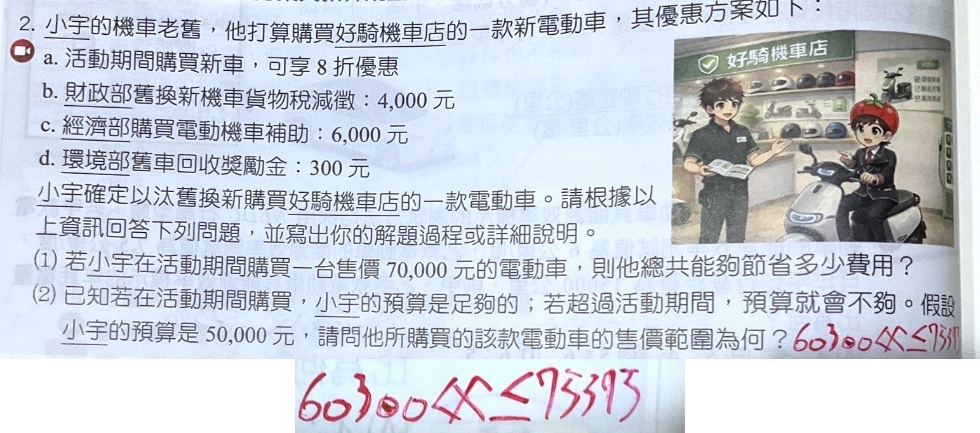 2. 小宇的機車老舊，他打算購買好騎機車店的一款新電動車，其優惠方案如下：
a. 活動期間購買新車，可享 8 折優惠
b. 財政部舊換新機車貨物稅減徵：4,000 元
c. 經濟部購買電動機車補助：6,000 元
d. 環境部舊車回收獎勵金：300 元
好騎機車店
小宇確定以汰舊換新購買好騎機車店的一款電動車。請根據以
上資訊回答下列問題，並寫出你的解題過程或詳細說明。
(1) 若小宇在活動期間購買一台售價 70,000 元的電動車，則他總共能夠節省多少費用？
(2) 已知若在活動期間購買，小宇的預算是足夠的；若超過活動期間，預算就會不夠。假設
小宇的預算是 50,000 元，請問他所購買的該款電動車的售價範圍為何？60300<x≤75375
60300<x≤75375